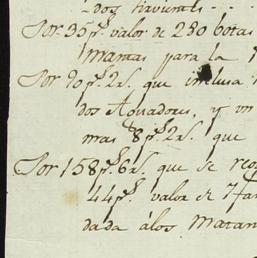 dos Havienas
Por 35 p.s valor de 280 botas
mantas para la
Por 90 p.s 2 r.s que inclusa
dos Aguadores, y un
mas 8 p.s 2 r.s que
Por 158 p.s 6 r.s que se reco
44 p.s valor de 7 fa
dada á los Matan